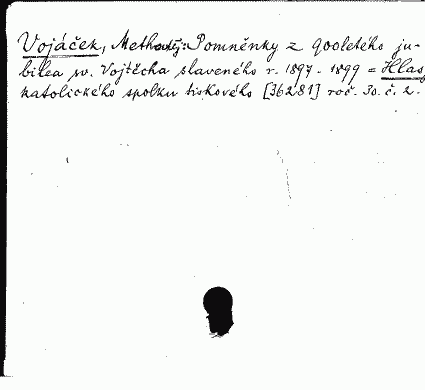 Vojáček, Methoděj: Pomněnky z 900letého ju-
bilea sv. Vojtěcha slaveného r. 1897-1899 = Hlas
katolického spolku tiskového [36281] roč. 30. č. 2.